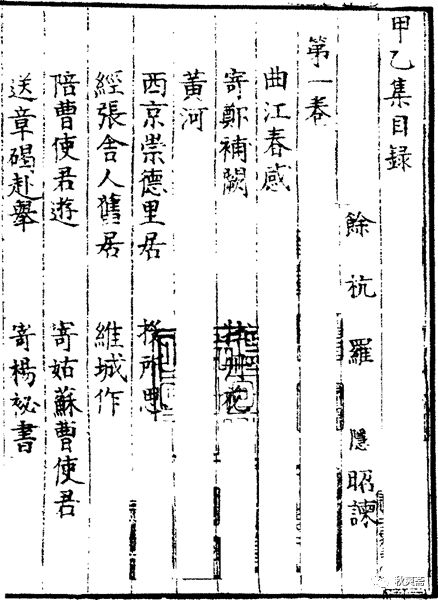 甲乙集目録
餘杭羅 隱 昭諫
第一卷
曲江春感
寄鄭補闕 牡丹花
黃河
西京崇德里居 投所思
經張舍人舊居 維城作
陪曹使君遊 寄姑蘇曹使君
送章碣赴舉 寄楊祕書
秋爽斋